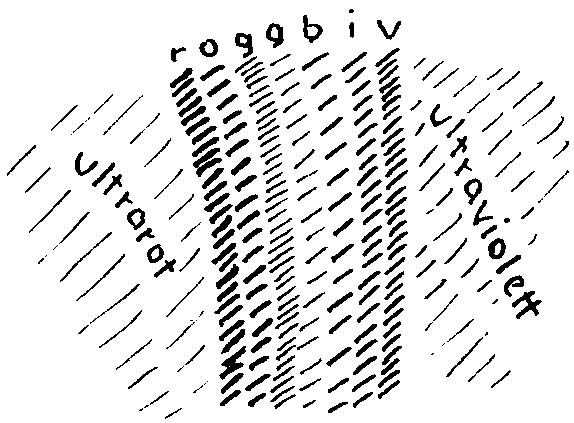 r o g g b i v
ultrarot
ultraviolett